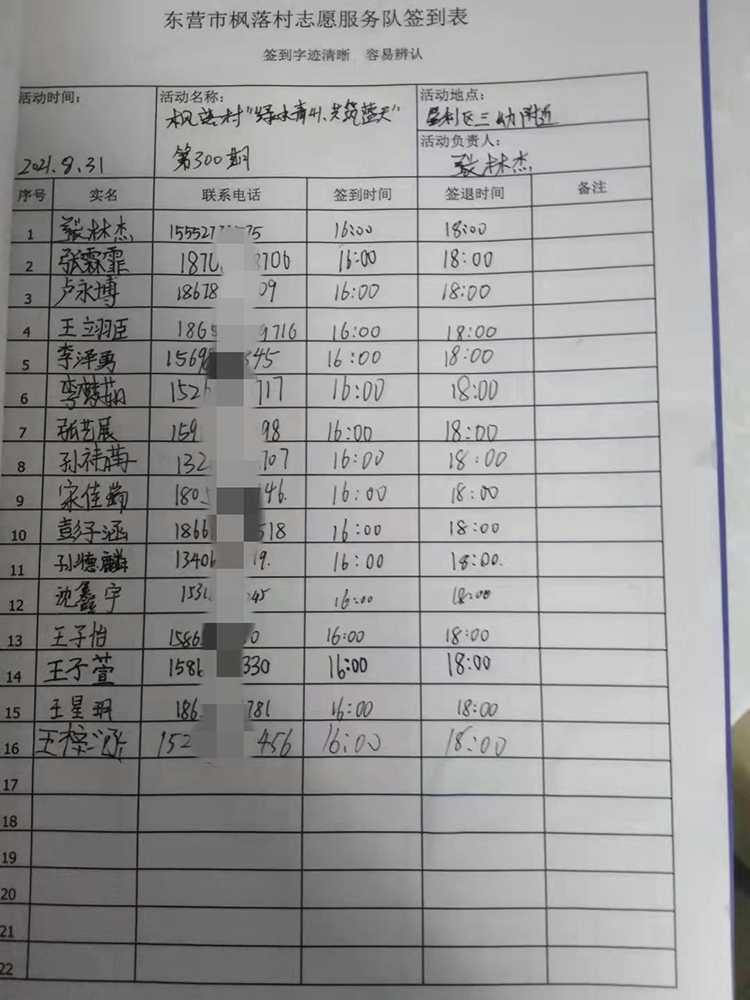 东营市枫落村志愿服务队签到表
签到字迹清晰 容易辨认
活动时间:
2021.8.31
活动名称:
枫落村"绿水青山、共筑蓝天"
第300期
活动地点:
垦利区三幼附近
活动负责人:
张林杰
序号 实名 联系电话 签到时间 签退时间 备注
1 张林杰 15552 75 16:00 18:00
2 张霖霏 1870 3706 16:00 18:00
3 卢永博 18678 09 16:00 18:00
4 王立翊臣 1865 9716 16:00 18:00
5 李泽勇 1569 345 16:00 18:00
6 152 717 16:00 18:00
7 张艺展 159 98 16:00 18:00
8 132 707 16:00 18:00
9 宋佳 180 46 16:00 18:00
10 彭子涵 1866 518 16:00 18:00
11 孙德麟 13406 19. 16:00 18:00.
12 沈鑫宇 153 45 16:00 18:00
13 王子怡 1586 0 16:00 18:00
14 王子萱 1586 330 16:00 18:00
15 王星玥 186 781 16:00 18:00
16 王 152 456 16:00 18:00
17
18
19
20
21
22